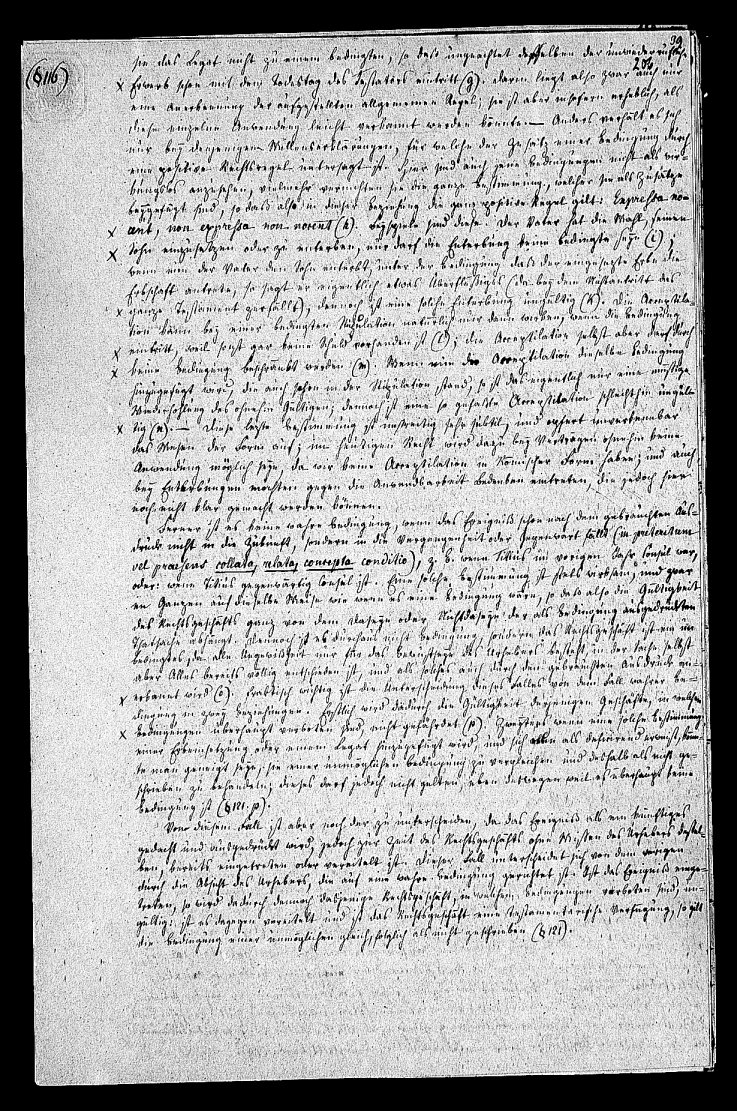 39
204
(§116)
sie das Legat nicht zu einem bedingten, so daß ungeachtet desselben der unwiderrufliche
Erwerb schon mit dem Todestag des Testators eintritt (g). Darin liegt also zwar auch nur
eine Anerkennung der aufgestellten allgemeinen Regel; sie ist aber insofern erheblich, als
diese einzelne Anwendung leicht verkannt werden könnte. — Anders verhält es sich
nur bey denjenigen Willenserklärungen, für welche der Zusatz einer Bedingung durch
eine positive Rechtsregel untersagt ist. Hier sind auch jene Bedingungen nicht als wir-
kungslos anzusehen, vielmehr vernichten sie die ganze Bestimmung, welcher sie als Zusätze
beygefügt sind, so daß also in dieser Beziehung die ganz positive Regel gilt: Expressa no-
cent, non expressa non nocent (h). Beyspiele sind diese. Der Vater hat die Wahl, seinen
Sohn einzusetzen oder zu enterben, nur darf die Enterbung keine bedingte seyn (i);
wenn nun der Vater den Sohn enterbt, unter der Bedingung, daß der eingesetzte Erbe die
Erbschaft antrete, so sagt er eigentlich etwas Überflüssiges (da bey dem Nichtantritt das
ganze Testament zerfällt), dennoch ist eine solche Enterbung ungültig (k). Die Acceptila-
tion kann bey einer bedingten Stipulation natürlich nur dann wirken, wenn die Bedingung
eintritt, weil sonst gar keine Schuld vorhanden ist (l); die Acceptilation selbst aber darf durch
keine Bedingung beschränkt werden (m). Wenn nun der Acceptilation dieselbe Bedingung
hinzugefügt wird, die auch schon in der Stipulation stand, so ist das eigentlich nur eine unnütze
Wiederholung des ohnehin Gültigen; dennoch ist eine so gefaßte Acceptilation schlechthin ungül-
tig (n). — Diese letzte Bestimmung ist unstreitig sehr subtil, und opfert unverkennbar
das Wesen der Form auf; im heutigen Recht wird dazu bey Verträgen ohnehin keine
Anwendung möglich seyn, da wir keine Acceptilation in Römischer Form haben; und auch
bey Enterbungen möchten gegen die Anwendbarkeit Bedenken eintreten, die jedoch hier
noch nicht klar gemacht werden können.
Ferner ist es keine wahre Bedingung, wenn das Ereigniß schon nach dem gebrauchten Aus-
druck nicht in die Zukunft, sondern in die Vergangenheit oder Gegenwart fällt (in praeteritum
vel praesens collata, relata, concepta conditio), z. B. wenn Titius im vorigen Jahr Consul war,
oder: wenn Titius gegenwärtig Consul ist. Eine solche Bestimmung ist stets wirksam, und zwar
im Ganzen auf dieselbe Weise wie wenn es eine Bedingung wäre, so daß also die Gültigkeit
des Rechtsgeschäfts ganz von dem Daseyn oder Nichtdaseyn der als Bedingung ausgedrückten
Thatsache abhängt. Dennoch ist es durchaus nicht Bedingung, sondern das Rechtsgeschäft ist ein un-
bedingtes, da alle Ungewißheit nur für das Bewußtseyn des Urhebers besteht, in der Sache selbst
aber Alles bereits völlig entschieden ist, und als solches auch durch den gebrauchten Ausdruck an-
erkannt wird (o). Praktisch wichtig ist die Unterscheidung dieses Falles von dem Fall wahrer Be-
dingung in zwey Beziehungen. Erstlich wird dadurch die Gültigkeit derjenigen Geschäfte, in welchen
Bedingungen überhaupt verboten sind, nicht gefährdet (p). Zweytens wenn eine solche Bestimmung
einer Erbeinsetzung oder einem Legat hinzugefügt wird, und sich als deficirend erweist, könn-
te man geneigt seyn, sie einer unmöglichen Bedingung zu vergleichen und deshalb als nicht ge-
schrieben zu behandeln; dieses darf jedoch nicht gelten, eben deswegen weil es überhaupt keine
Bedingung ist (§121. p).
Von diesem Fall ist aber noch der zu unterscheiden, da das Ereigniß als ein künftiges
gedacht und ausgedrückt wird, jedoch zur Zeit des Rechtsgeschäfts ohne Wissen des Urhebers dessel-
ben, bereits eingetreten oder vereitelt ist. Dieser Fall unterscheidet sich von dem vorigen
durch die Absicht des Urhebers, die auf eine wahre Bedingung gerichtet ist. Ist das Ereigniß einge-
treten, so wird dadurch dennoch dasjenige Rechtsgeschäft, in welchem Bedingungen verboten sind, un-
gültig: ist es dagegen vereitelt und ist das Rechtsgeschäft eine testamentarische Verfügung, so gilt
die Bedingung einer unmöglichen gleich, folglich als nicht geschrieben (§121).